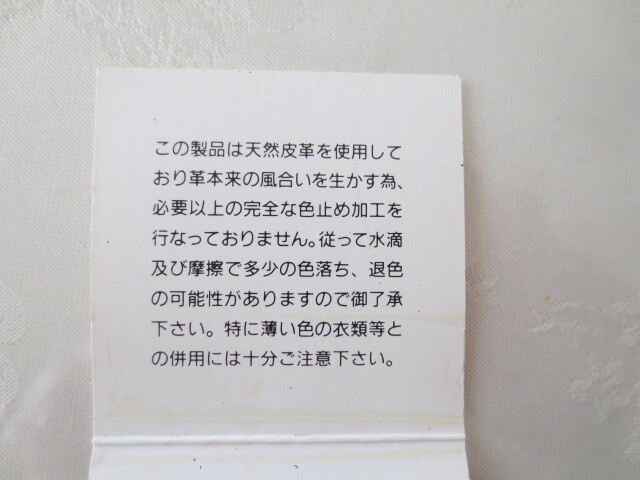 この製品は天然皮革を使用して
おり革本来の風合いを生かす為、
必要以上の完全な色止め加工を
行なっておりません。従って水滴
及び摩擦で多少の色落ち、退色
の可能性がありますので御了承
下さい。特に薄い色の衣類等と
の併用には十分ご注意下さい。